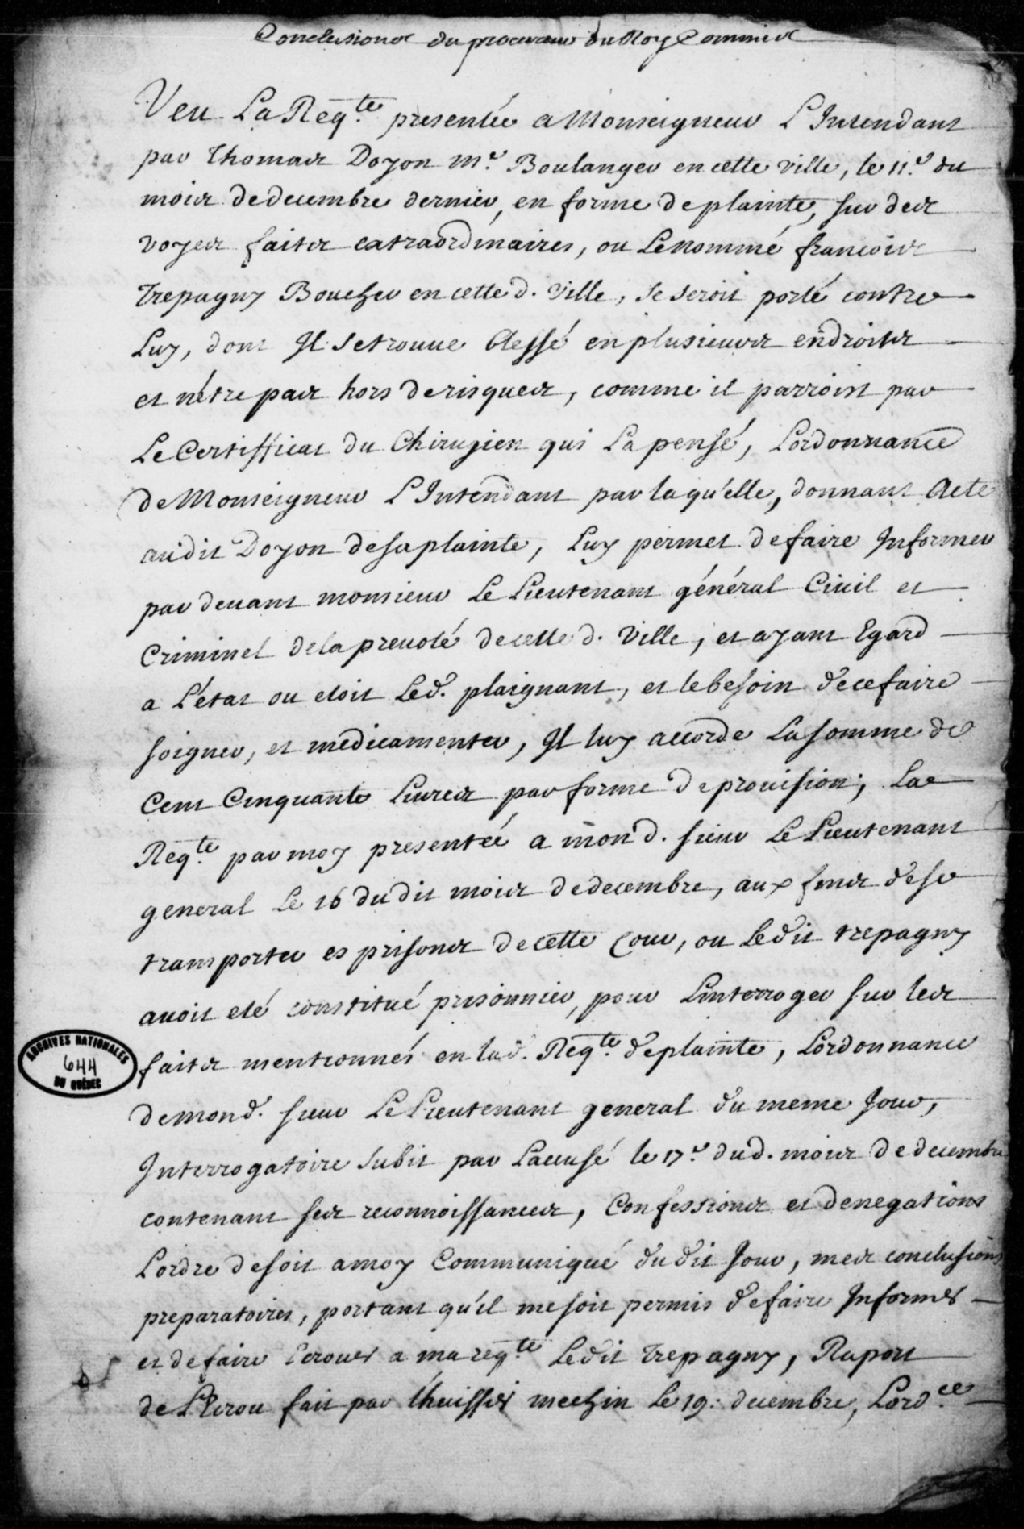 Conclusions du procureur du Roy Commis
Veu La Reqte. presentée a Monseigneur L'Intendant
par Thomas Doyon me. Boulanger en cette ville, le 11e. du
mois de decembre dernier, en forme de plainte, sur des
voyes faites extraordinaires, ou Le nommé francois
Trepagny Boucher en cette d. Ville, se seroit porté contre
Luy, dont Il se trouve blessé en plusieurs endroits
et n'être pas hors de risques, comme il parroist par
Le Certifficat du Chirugien qui La pensé, Lordonnance
de Monseigneur L'Intendant par laqu'elle, donnant Acte
audit Doyon de sa plainte, Luy permet de faire Informer
par devant monsieur Le Lieutenant général Civil et
Criminel de la prevoté de cette d. Ville, et ayant Egard
a L'état ou etoit Led. plaignant, et le besoin de ce faire
soigner, et medicamenter, Il luy accorde La somme de
Cent Cinquante Livres par forme de provision; La
Reqte. par moy presentée a mond. sieur Le Lieutenant
general Le 16 dudit mois de decembre, aux fins de se
transporter es prisons de cette Cour, ou ledit trepagny
avoit eté constitué prisonnier, pour Linterroger sur les
faits mentionnés en lad. Reqte. de plainte, Lordonnance
de mond. sieur Le Lieutenant general du meme Jour,
Interrogatoire subit par Laccusé le 17e. dud. mois de decembre
contenant ses reconnoissances, Confessions et denegations
Lordre de soit a moy Communiqué dudit Jour, mes conclusions
preparatoires, portant qu'il me soit permis de faire Informer
et de faire Ecrouer a ma reqte. Ledit Trepagny, Raport
de L'Ecrou fait par Lhuissier mechin Le 19: decembre, Lordce.
ARCHIVES NATIONALES
644
DU QUÉBEC